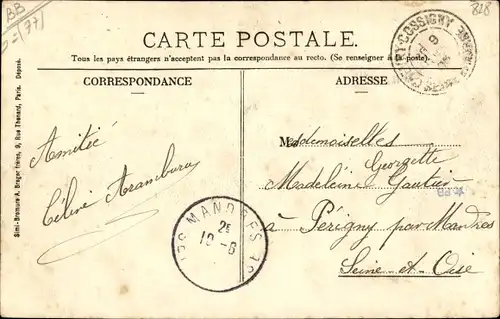 BB
77
328
CARTE POSTALE.
Tous les pays étrangers n'acceptent pas la correspondance au recto. (Se renseigner à la poste).
CORRESPONDANCE
ADRESSE
Simi-Bromure A. Breger frères, 9, Rue Thénard, Paris. Déposé.
COSSIGNY
Amitié
Céline Aramburu
Mademoiselles
Georgette
Madeleine Gautier
à Périgny par Mandres
Seine-et-Oise
MANDRES
2E
19-6